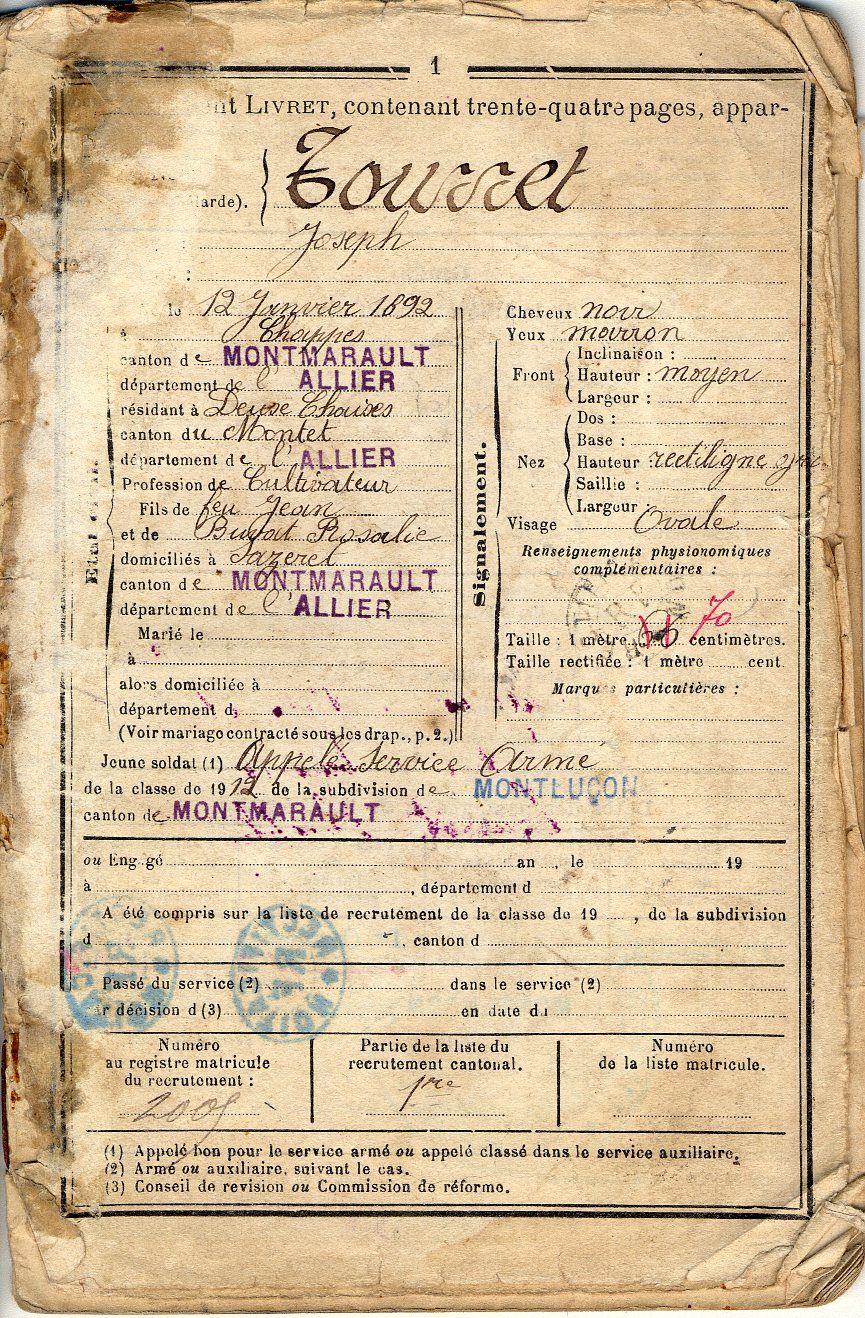 1
LIVRET, contenant trente-quatre pages, appar-
arde). Tourret
Joseph
:
le 12 Janvier 1892
à Chappes
canton de MONTMARAULT
département de l' ALLIER
résidant à Deux Chaises
canton du Montet
département de l' ALLIER
Profession de Cultivateur
Fils de feu Jean
et de Rosalie
domiciliés à Sazeret
canton de MONTMARAULT
département de l' ALLIER
Marié le
à
alors domiciliée à
département d
(Voir mariage contracté sous les drap., p. 2.)
Signalement.
Cheveux noir
Yeux marron
Front
Inclinaison :
Hauteur : moyen
Largeur :
Nez
Dos :
Base :
Hauteur rectiligne
Saillie :
Largeur
Visage Ovale
Renseignements physionomiques
complémentaires :
Taille : 1 mètre 70 centimètres.
Taille rectifiée : 1 mètre cent.
Marques particulières :
Jeune soldat (1) Appelé service Armé
de la classe de 1912 de la subdivision de MONTLUÇON
canton de MONTMARAULT
ou Engagé an , le 19
à , département d
A été compris sur la liste de recrutement de la classe de 19 , de la subdivision
d , canton d
Passé du service (2) dans le service (2)
ar décision d (3) en date du
Numéro
au registre matricule
du recrutement :
2005
Partie de la liste du
recrutement cantonal.
1re
Numéro
de la liste matricule.
(1) Appelé bon pour le service armé ou appelé classé dans le service auxiliaire.
(2) Armé ou auxiliaire, suivant le cas.
(3) Conseil de revision ou Commission de réforme.